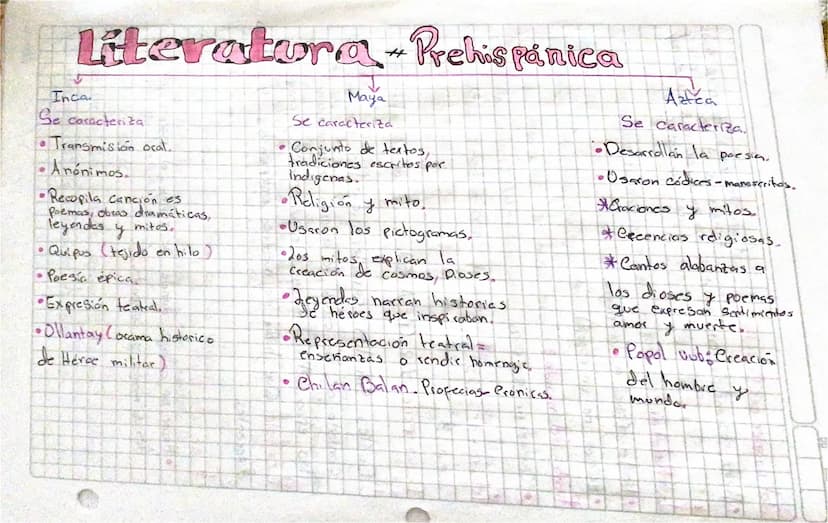 Literatura - Prehispánica
Inca.
Se caracteriza
• Transmisión oral.
• Anónimos.
• Recopila canción es
poemas, obras dramáticas,
leyendas y mitos.
• Quipus (tejido en hilo)
• Poesía épica.
• Expresión teatral.
• Ollantay (drama historico
de Héroe militar)
Maya
Se caracteriza
• Conjunto de textos,
tradiciones escritos por
Indígenas.
• Religión y mito.
• Usaron los pictogramas.
• Los mitos, explican la
creación de cosmos, Dioses.
• Leyendas narran historias
de héroes que inspiraban.
• Representación teatral =
enseñanzas o rendir homenaje.
• Chilan Balan - Profecias-Cronicas.
Azteca
Se caracteriza.
• Desarrollan la poesía.
• Usaron códices - manuscritos.
* Oraciones y mitos
* Creencias religiosas.
* Cantos alabanzas a
los dioses y poemas
que expresan sentimientos
amor y muerte.
• Popol vuh; Creación
del hombre y
mundo.